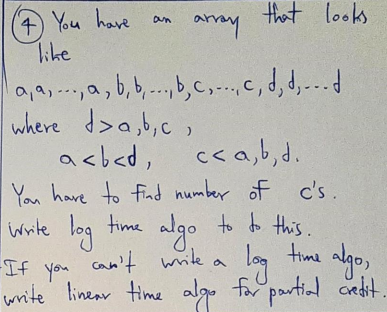 ④ You have an array that looks
like
a,a,...,a,b,b,...,b,c,...,c,d,d,...d
where d>a,b,c ,
a<b<d, c<a,b,d.
You have to find number of c's.
Write log time algo to do this.
If you can't write a log time algo,
write linear time algo for partial credit.